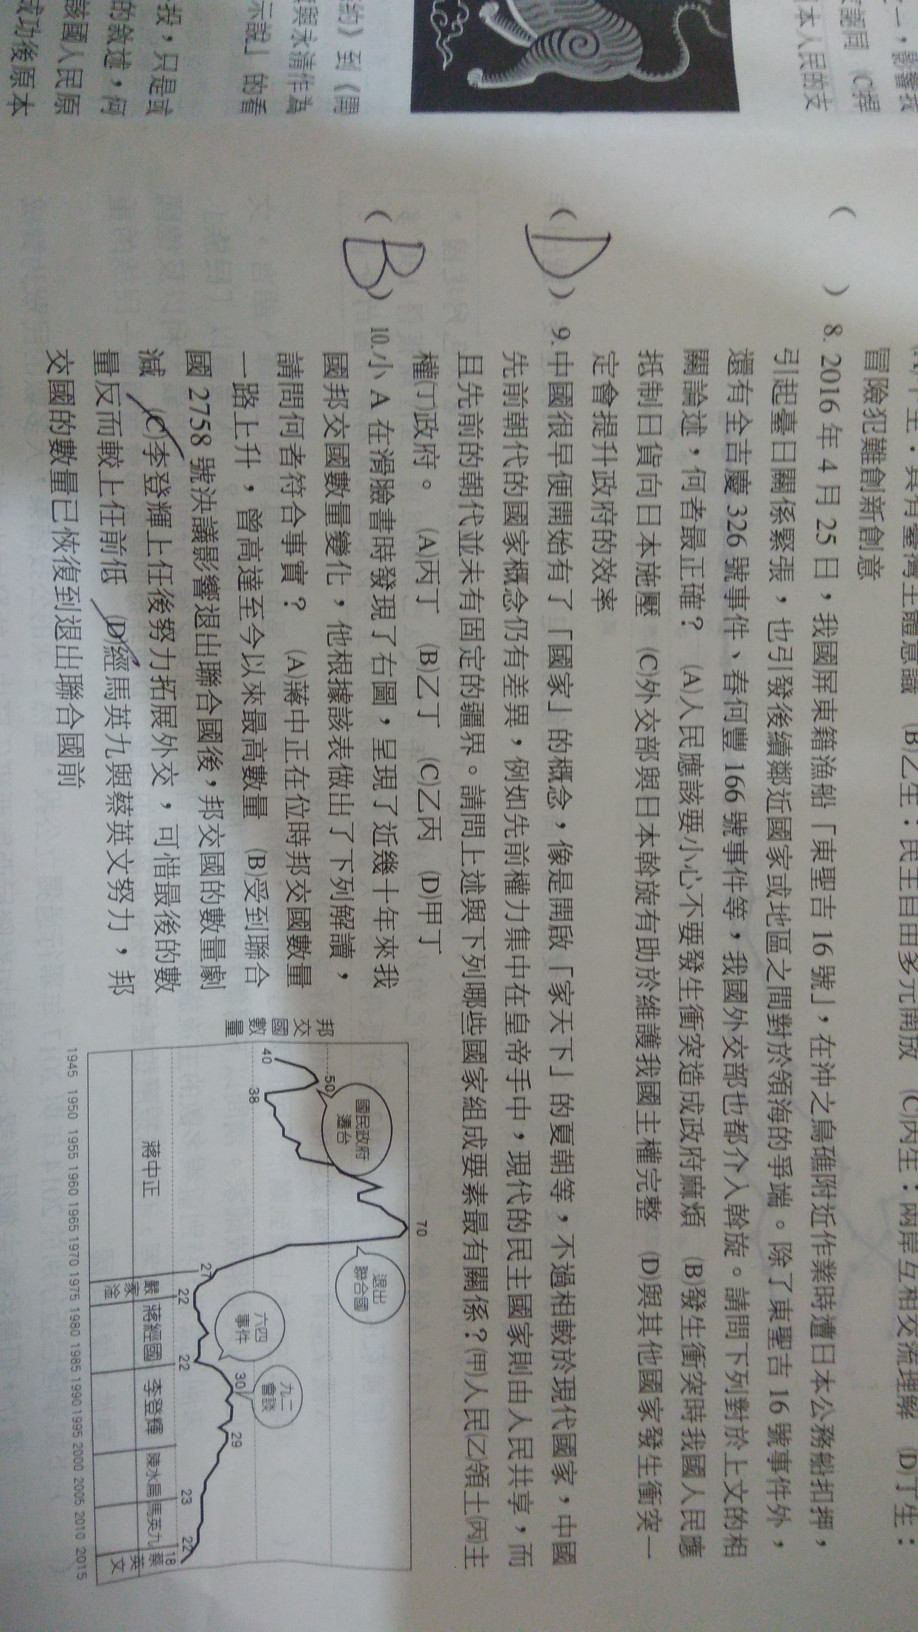 之一，影響我
家認同 (C)捍
日本人民的支
約》到《開
與永清作為
示說」的看
投，只是或
的敘述，何
該國人民原
成功後原本
(A)甲生：具有臺灣主體意識 (B)乙生：民主自由多元開放 (C)丙生：兩岸互相交流理解 (D)丁生：
冒險犯難創新創意
( ) 8. 2016 年 4 月 25 日，我國屏東籍漁船「東聖吉 16 號」，在沖之鳥礁附近作業時遭日本公務船扣押，
引起臺日關係緊張，也引發後續鄰近國家或地區之間對於領海的爭端。除了東聖吉 16 號事件外，
還有全吉慶 326 號事件、春何豐 166 號事件等，我國外交部也都介入斡旋。請問下列對於上文的相
關論述，何者最正確？ (A)人民應該要小心不要發生衝突造成政府麻煩 (B)發生衝突時我國人民應
抵制日貨向日本施壓 (C)外交部與日本斡旋有助於維護我國主權完整 (D)與其他國家發生衝突一
定會提升政府的效率
( D ) 9.中國很早便開始有了「國家」的概念，像是開啟「家天下」的夏朝等，不過相較於現代國家，中國
先前朝代的國家概念仍有差異，例如先前權力集中在皇帝手中，現代的民主國家則由人民共享，而
且先前的朝代並未有固定的疆界。請問上述與下列哪些國家組成要素最有關係？(甲)人民(乙)領土(丙)主
權(丁)政府。 (A)丙丁 (B)乙丁 (C)乙丙 (D)甲丁
( B ) 10.小 A 在滑臉書時發現了右圖，呈現了近幾十年來我
國邦交國數量變化，他根據該表做出了下列解讀，
請問何者符合事實？ (A)蔣中正在位時邦交國數量
一路上升，曾高達至今以來最高數量 (B)受到聯合
國 2758 號決議影響退出聯合國後，邦交國的數量劇
減 (C)李登輝上任後努力拓展外交，可惜最後的數
量反而較上任前低 (D)經馬英九與蔡英文努力，邦
交國的數量已恢復到退出聯合國前
邦交國數量
70
國民政府
遷台
退出
聯合國
50
40
38
六四
事件
九二
會談
30
29
27
22
22
23
22
18
蔣中正
嚴家淦
蔣經國
李登輝
陳水扁
馬英九
蔡英文
1945 1950 1955 1960 1965 1970 1975 1980 1985 1990 1995 2000 2005 2010 2015